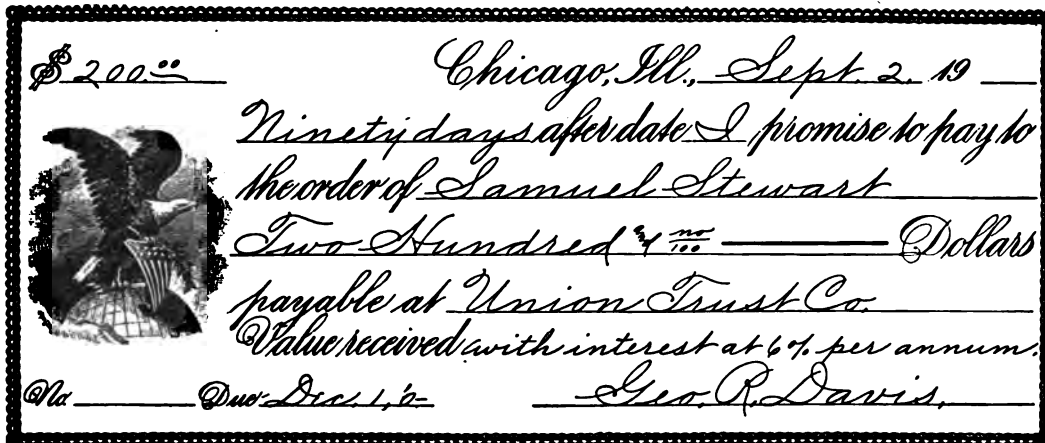 $200.00 Chicago, Ill., Sept. 2. 19
Ninety days after date I promise to pay to
the order of Samuel Stewart
Two Hundred & no/100 Dollars
payable at Union Trust Co.
Value received with interest at 6% per annum.
No Due Dec. 1, '0- Geo. R. Davis.